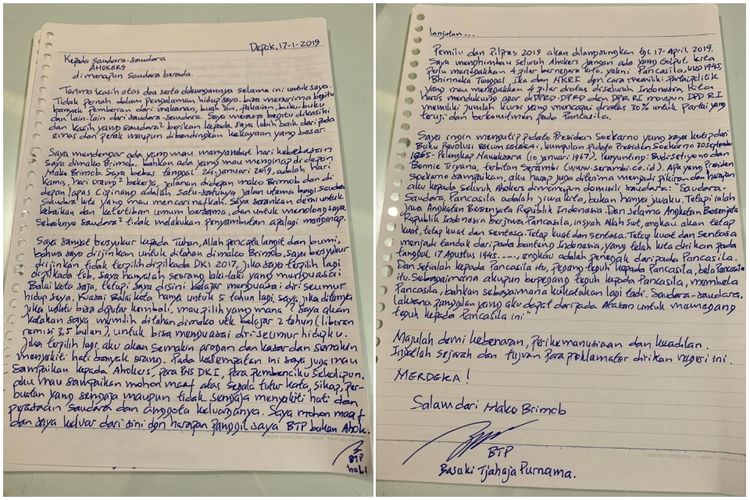 Depok, 17-1-2019
Kepada Saudara-saudara
AHOKERS
dimanapun Saudara berada.
Terima kasih atas doa serta dukungannya selama ini untuk saya.
Tidak pernah dalam pengalaman hidup saya, bisa menerima begitu
banyak pemberian dari makanan, buah2an, pakaian, buku-buku
dan lain-lain dari saudara-saudara. Saya merasa begitu dikasihi
dan kasih yang saudara2 berikan kepada saya lebih baik daripada
emas dan perak maupun dibandingkan kekayaan yang besar.
Saya mendengar ada yang mau menyambut hari kebebasan
Saya dimako Brimob, bahkan ada yang mau menginap di depan
Mako Brimob. Saya bebas tanggal 24-januari-2019, adalah hari
Kamis, hari orang2 bekerja, jalanan didepan mako Brimob dan di
depan lapas Cipinang adalah satu-satunya jalan utama bagi saudara
Saudara kita yang mau mencari nafkah. Saya sarankan demi untuk
kebaikan dan ketertiban umum bersama, dan untuk menolong saya,
Sebaiknya saudara2 tidak melakukan penyambutan apalagi menginap.
Saya sangat bersyukur kepada Tuhan, Allah pencipta langit dan bumi,
bahwa saya diijinkan untuk ditahan di mako Brimob. Saya bersyukur
diijinkan tidak terpilih di pilkada DKI 2017, jika saya terpilih lagi
di pilkada tsb, saya hanyalah seorang laki-laki yang menguasai
Balai kota saja, tetapi saya disini belajar menguasai diri seumur
hidup saya. Kuasai Balai kota hanya untuk 5 tahun lagi. Saya jika ditanya
jika waktu bisa diputar kembali, mau pilih yang mana? Saya akan
katakan saya memilih ditahan di mako utk belajar 2 tahun (liburan
remisi 3,5 bulan), untuk bisa menguasai diri seumur hidupku.
Jika terpilih lagi, aku akan semakin arogan dan kasar dan semakin
menyakiti hati banyak orang. Pada kesempatan ini saya juga mau
sampaikan kepada Ahokers, para PNS DKI, para pembenciku sekalipun,
aku mau sampaikan mohon maaf atas segala tutur kata, sikap, per-
buatan yang sengaja maupun tidak sengaja menyakiti hati dan
perasaan Saudara dan anggota keluarganya. Saya mohon maaf
dan saya keluar dari sini dgn harapan panggil saya BTP bukan Ahok.
BTP
hal 1
lanjutan...
Pemilu dan Pilpres 2019 akan dilangsungkan tgl 17-April 2019.
Saya menghimbau seluruh Ahokers jangan ada yang Golput, kita
Perlu menegakkan 4 pilar bernegara kita, yakni Pancasila, UUD 1945,
Bhinneka Tunggal Ika dan NKRI dgn cara memiliki partai politik
yang mau menegakkan 4 pilar diatas di seluruh Indonesia. Kita
harus mendukung agar di DPRD-DPRD dan DPR RI maupun DPD RI
memiliki jumlah kursi yang mencapai diatas 30% untuk Partai yang
teruji dan berkomitmen pada Pancasila.
Saya ingin mengutip pidato Presiden Soekarno yang saya kutip dari
Buku Revolusi belum selesai, kumpulan Pidato Presiden 30 September
1965 - Pelengkap Nawaksara (10 januari 1967). Penyunting: Budi Setiyono dan
Bonnie Triyana, terbitan Serambi (www.serambi.co.id). Apa yang Presiden
Soekarno sampaikan, aku harap juga diterima menjadi pikiran dan harapan
aku kepada seluruh Ahokers dimanapun domisili saudara: "Saudara-
Saudara, Pancasila adalah jiwa kita, bukan hanya jiwaku. Tetapi ialah
jiwa Angkatan Bersenjata Republik Indonesia. Dan selama Angkatan Bersenjata
Republik Indonesia berjiwa Pancasila, insyah Allah SWT, engkau akan tetap
kuat, tetap kuat dan sentausa. Tetap kuat dan sentausa. Tetap kuat dan sentausa
menjadi tanduk daripada banteng Indonesia, yang telah kita dirikan pada
tanggal 17 Agustus 1945....., engkau adalah penegak daripada Pancasila.
Dan setialah kepada Pancasila itu, pegang teguh kepada Pancasila, bela Pancasila
itu. Sebagaimana akupun berpegang teguh kepada Pancasila, membela
Pancasila, bahkan sebagaimana kukatakan lagi tadi. Saudara-saudara,
laksana panggilan yang aku dapat daripada Atasan untuk memegang
teguh kepada Pancasila ini."
Majulah demi kebenaran, perikemanusiaan dan keadilan.
Ingatlah sejarah dan tujuan para proklamator dirikan negeri ini.
MERDEKA!
Salam dari Mako Brimob
BTP
Basuki Tjahaja Purnama.